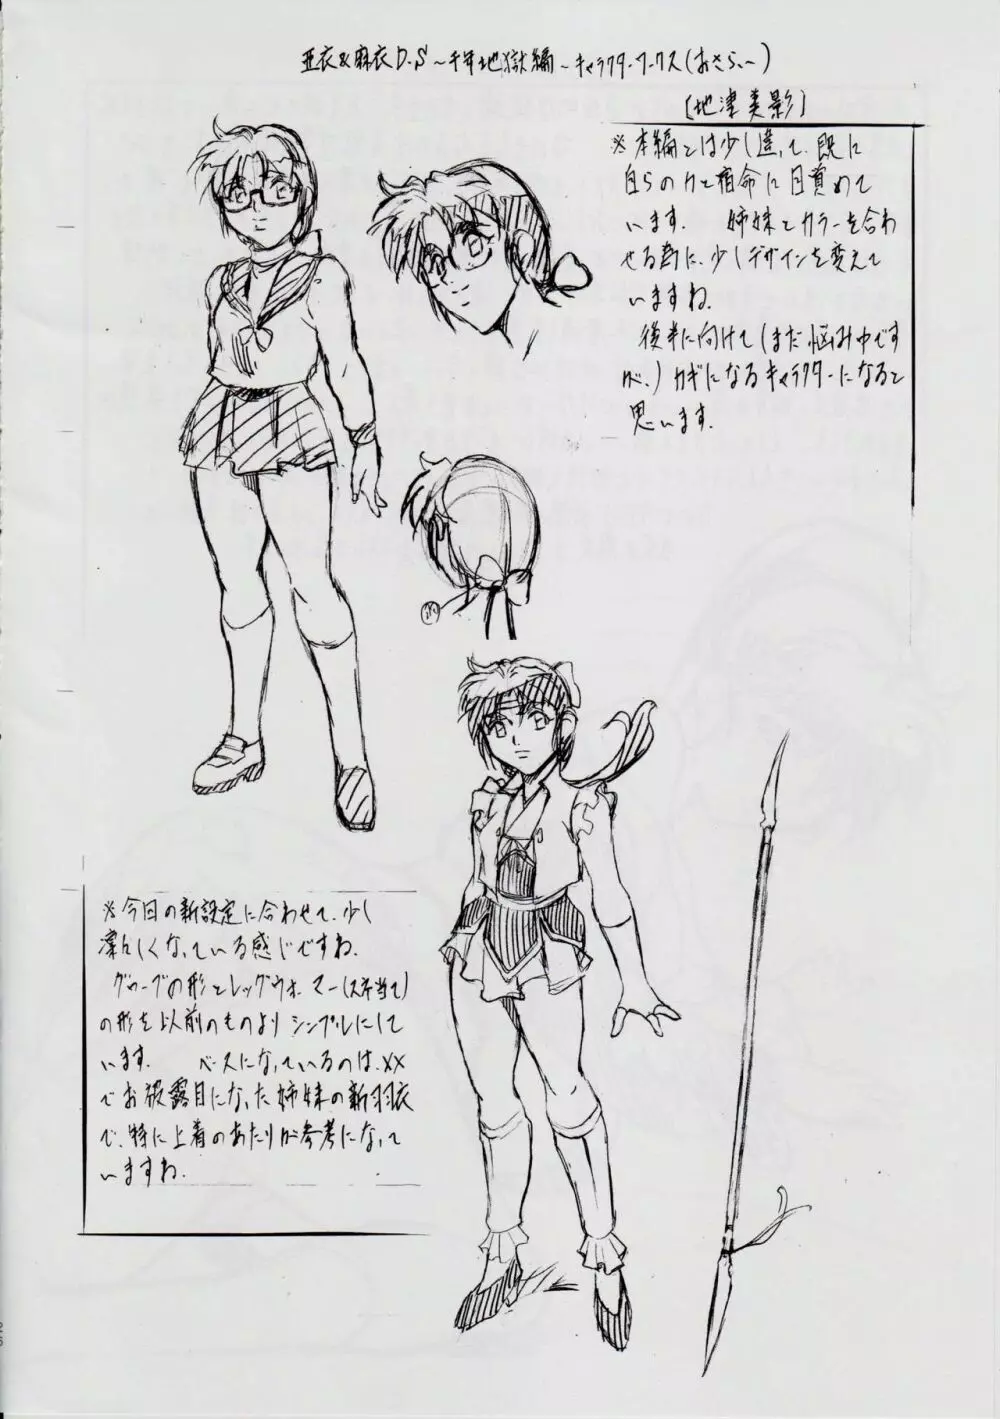 亜衣&麻衣D.S～千年地獄編～キャラクターワークス(おさらい～)
[地津美影]
※本編とは少し違って、既に
自らの力と宿命に目覚めて
います。 姉妹とカラーを合わ
せる為に、少しデザインを変えて
いますね。
後半に向けて(まだ悩み中です
が、)カギになるキャラクターになると
思います。
※今回の新設定に合わせて、少し
凛々しくなっている感じですね。
グローブの形とレッグウォーマー(スネ当て)
の形を以前のものよりシンプルにして
います。 ベースになっているのは、××
でお披露目になった姉妹の新羽衣
で、特に上着のあたりが参考になって
いますね。